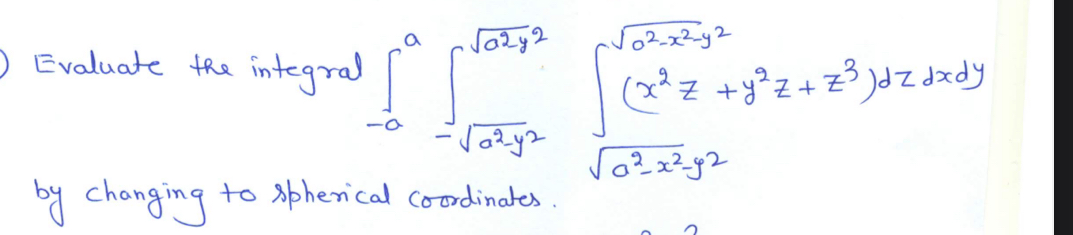 ) Evaluate the integral ∫_{-a}^{a} ∫_{-√(a²-y²)}^{√(a²-y²)} ∫_{√(a²-x²-y²)}^{√(a²-x²-y²)} (x²z + y²z + z³) dz dx dy
by changing to spherical coordinates.